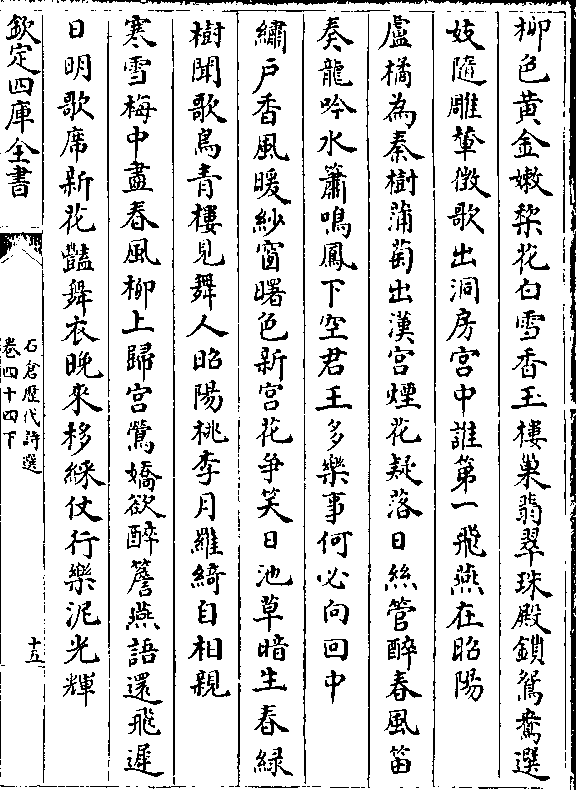 柳色黄金嫩棃花白雪香玉樓巢翡翠珠殿鎖鴛鴦選
妓隨雕輦徴歌出洞房宫中誰第一飛燕在昭陽
盧橘為秦樹蒲萄出漢宫煙花疑落日絲管醉春風笛
奏龍吟水簫鳴鳳下空君王多樂事何必向回中
繡户香風暖紗窗曙色新宫花爭笑日池草暗生春緑
樹聞歌鳥青樓見舞人昭陽桃李月羅綺自相親
寒雪梅中盡春風柳上歸宫鶯嬌欲醉簷燕語還飛遲
日明歌席新花豔舞衣晚來移綵仗行樂泥光輝
欽定四庫全書
石倉歴代詩選
卷四十四下
十五